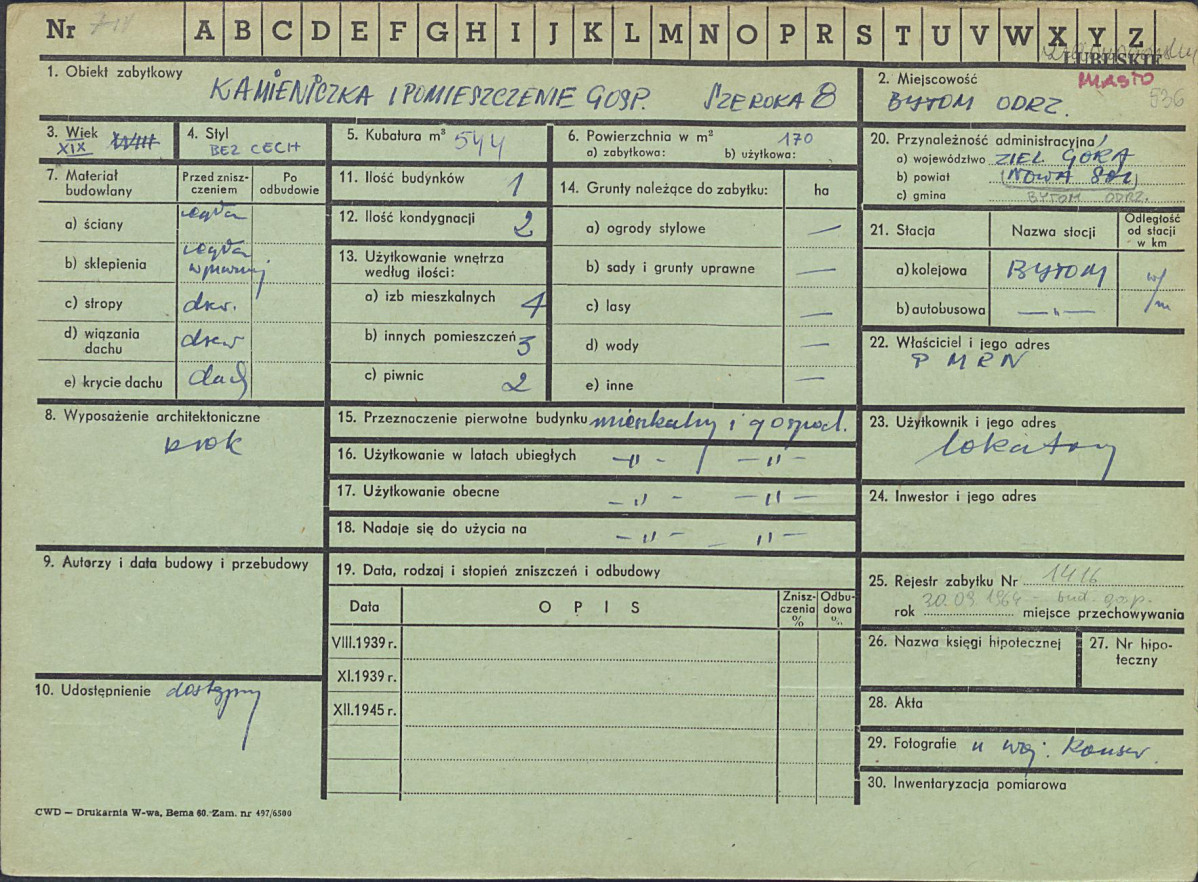 Nr
A B C D E F G H I J K L M N O P R S T U V W X Y Z
LUBUSKIE
1. Obiekt zabytkowy
KAMIENICZKA I POMIESZCZENIE GOSP. SZEROKA 8
2. Miejscowość
MIASTO
BYTOM ODRZ.
536
3. Wiek
XIX XVIII
4. Styl
BEZ CECH
5. Kubatura m³ 544
6. Powierzchnia w m² 170
a) zabytkowa: b) użytkowa:
7. Materiał budowlany
Przed zniszczeniem
Po odbudowie
a) ściany cegła
b) sklepienia cegła
c) stropy drew.
d) wiązania dachu drew
e) krycie dachu dach
8. Wyposażenie architektoniczne
brak
9. Autorzy i data budowy i przebudowy
10. Udostępnienie dostępny
11. Ilość budynków 1
12. Ilość kondygnacji 2
13. Użytkowanie wnętrza według ilości:
a) izb mieszkalnych 4
b) innych pomieszczeń 3
c) piwnic 2
14. Grunty należące do zabytku: ha
a) ogrody stylowe —
b) sady i grunty uprawne —
c) lasy —
d) wody —
e) inne —
15. Przeznaczenie pierwotne budynku mieszkalny i gospod.
16. Użytkowanie w latach ubiegłych -"- -"-
17. Użytkowanie obecne -"- -"-
18. Nadaje się do użycia na -"- -"-
19. Data, rodzaj i stopień zniszczeń i odbudowy
Data
OPIS
Zniszczenia %
Odbudowa %
VIII.1939 r.
XI.1939 r.
XII.1945 r.
20. Przynależność administracyjna
a) województwo ZIEL. GÓRA
b) powiat (NOWA SÓL)
c) gmina BYTOM ODRZ.
21. Stacja
Nazwa stocji
Odległość od stacji w km
a) kolejowa BYTOM w/m
b) autobusowa -"-
22. Właściciel i jego adres
P MRN
23. Użytkownik i jego adres
lokatorzy
24. Inwestor i jego adres
25. Rejestr zabytku Nr 1416
30.09 1964 - bud. gosp.
rok miejsce przechowywania
26. Nazwa księgi hipotecznej
27. Nr hipoteczny
28. Akta
29. Fotografie u woj. Konserw.
30. Inwentaryzacja pomiarowa
CWD — Drukarnia W-wa, Bema 60. Zam. nr 497/6500